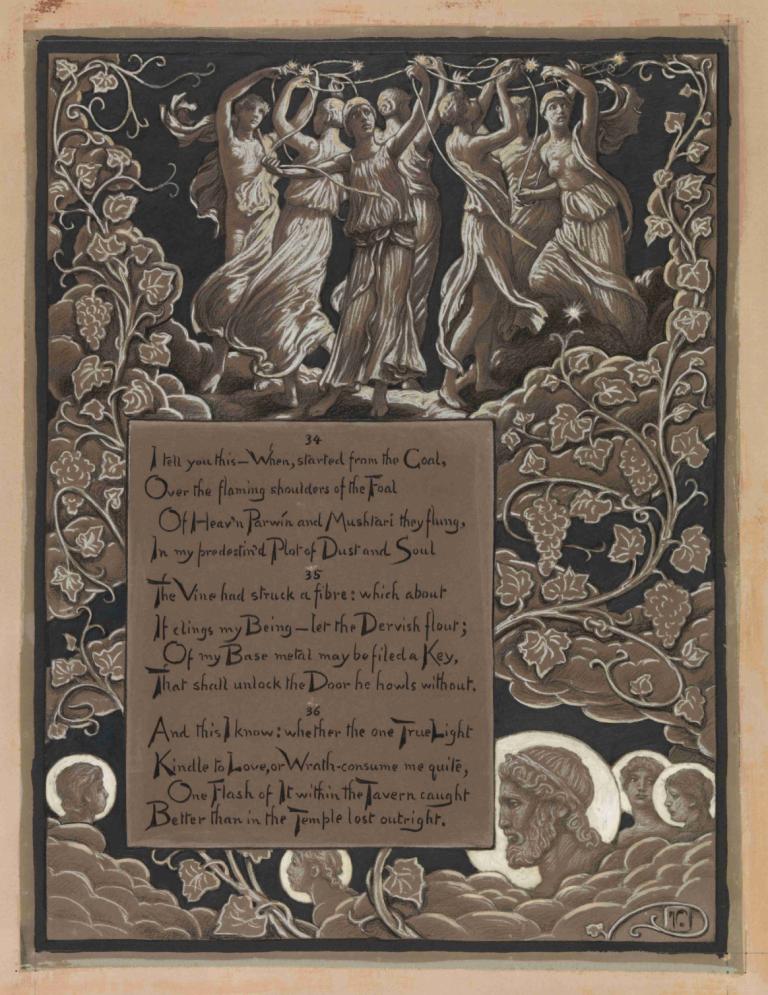 34
I tell you this—When, started from the Goal,
Over the flaming shoulders of the Foal
Of Heav'n Parwin and Mushtari they flung,
In my predestin'd Plot of Dust and Soul
35
The Vine had struck a fibre: which about
It clings my Being—let the Dervish flout;
Of my Base metal may be filed a Key,
That shall unlock the Door he howls without.
36
And this I know: whether the one True Light
Kindle to Love, or Wrath-consume me quite,
One Flash of It within the Tavern caught
Better than in the Temple lost outright.
V.